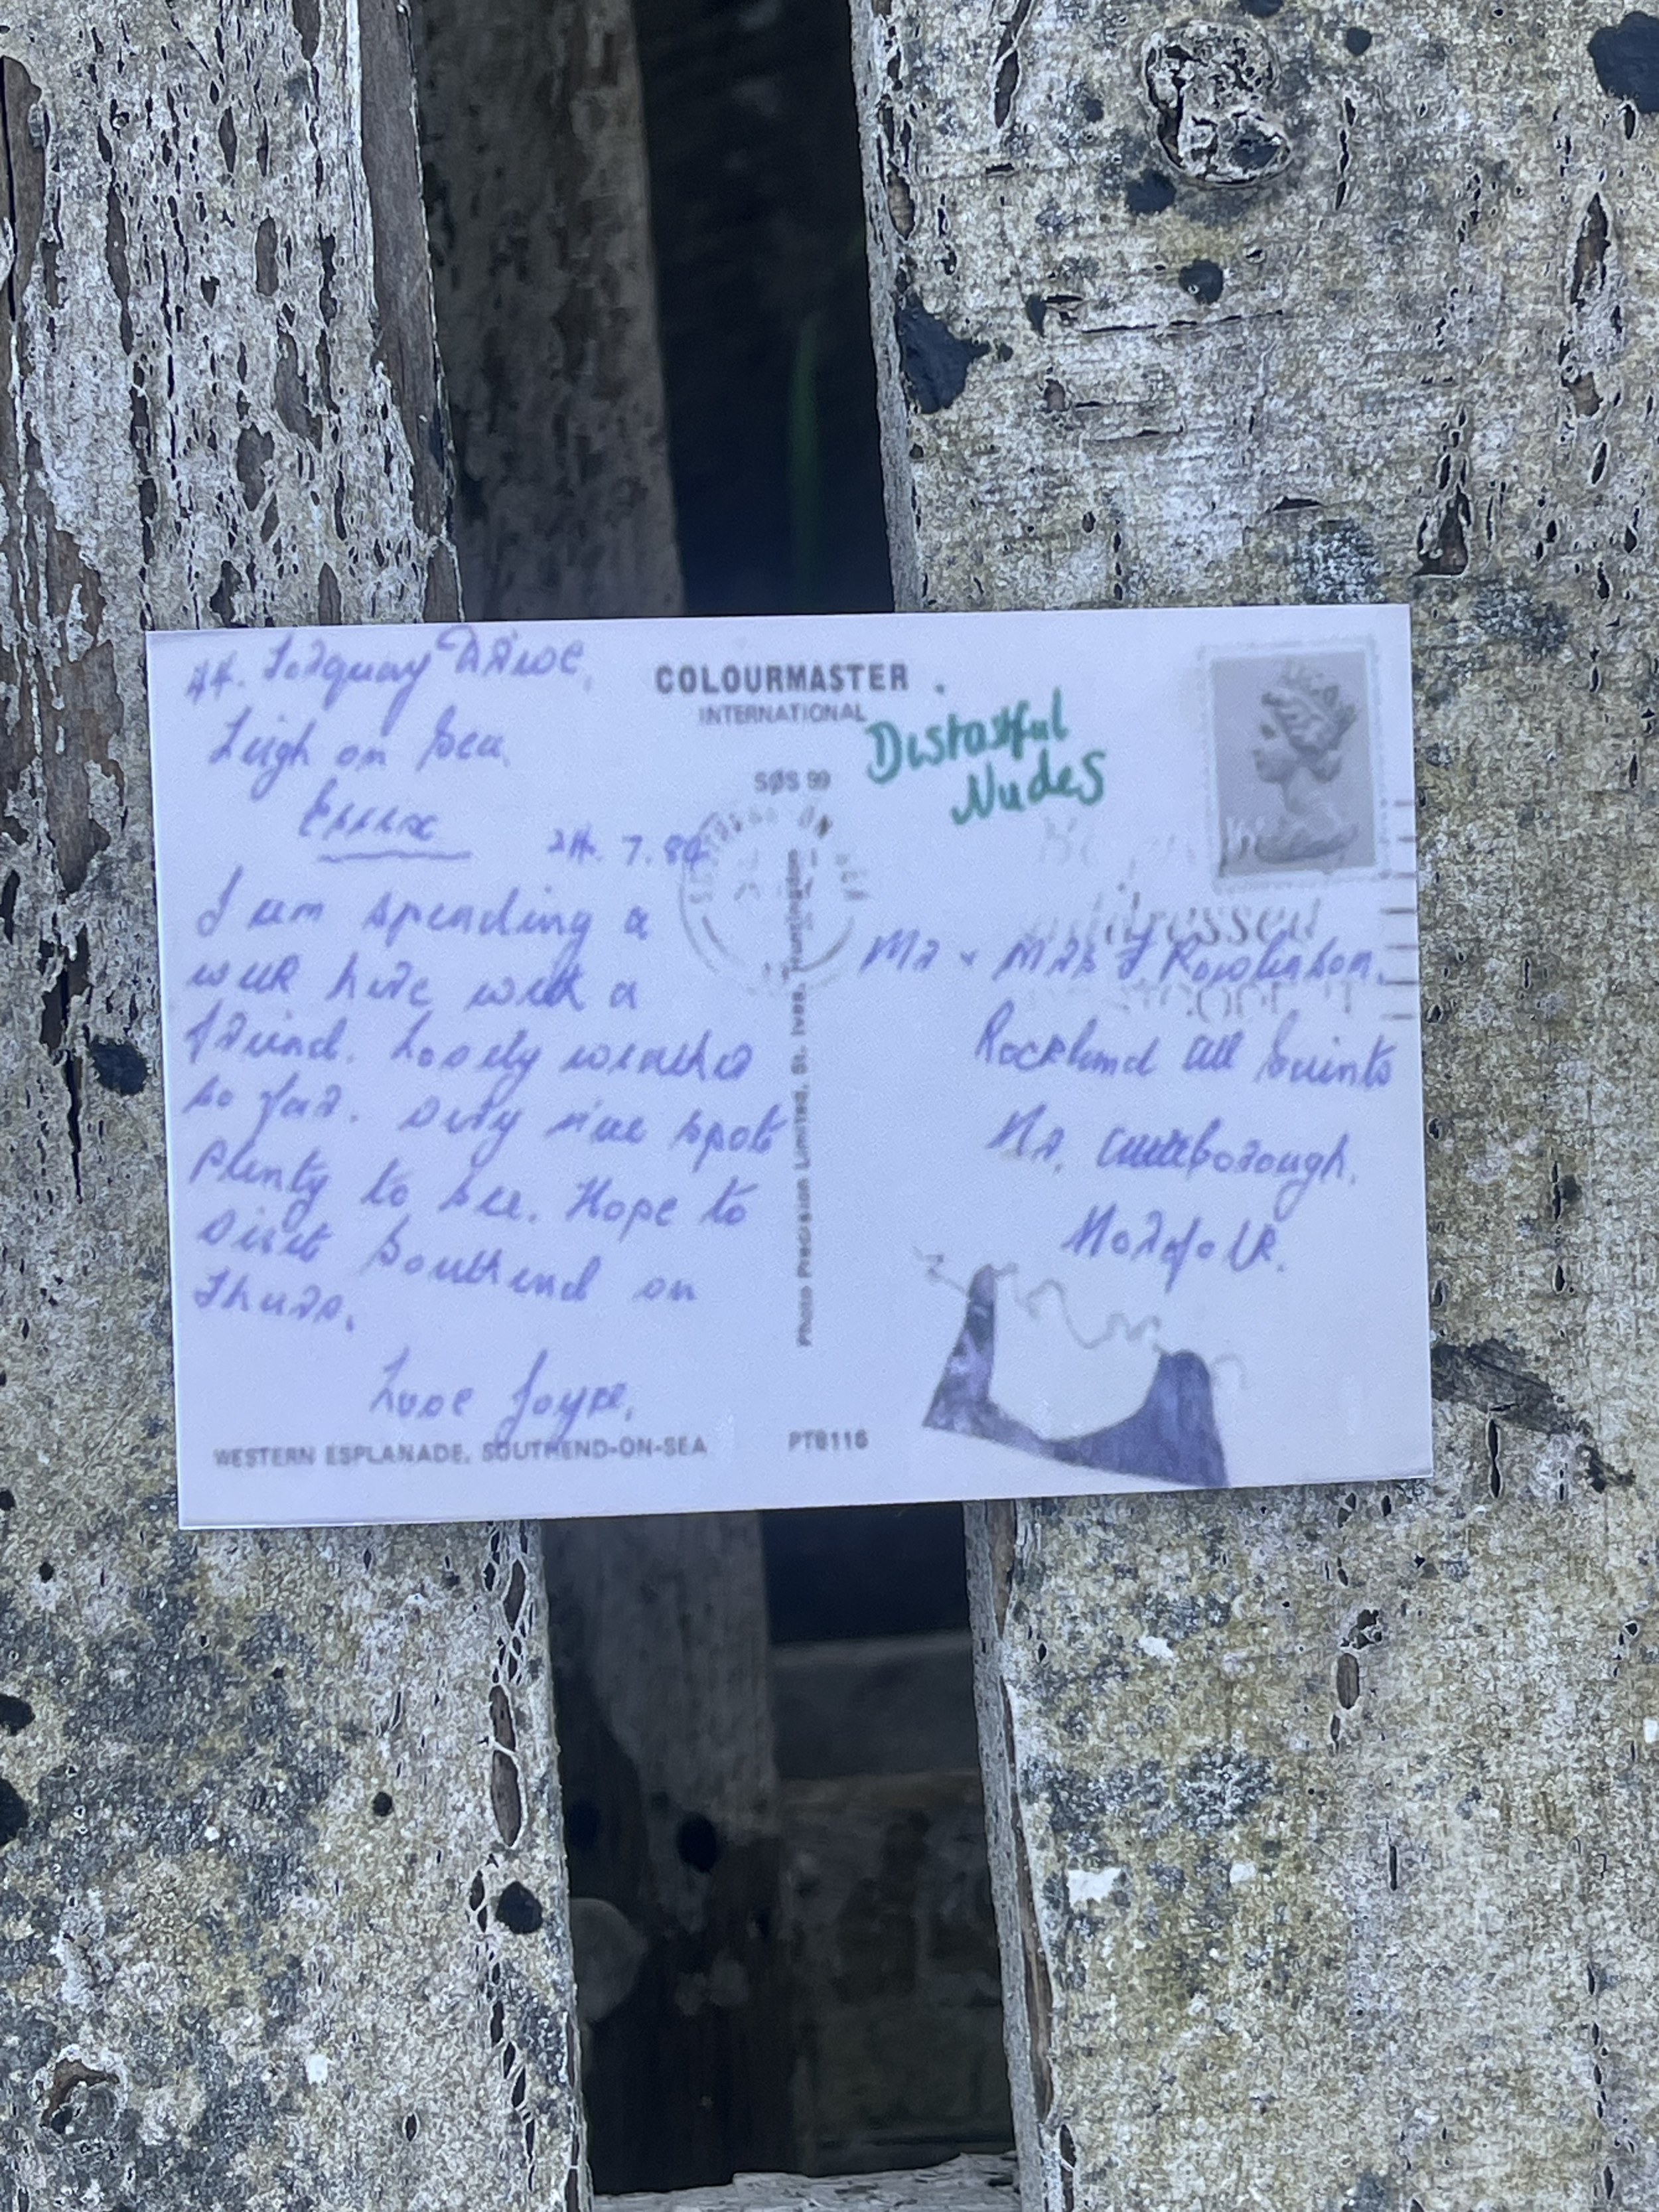 44. Torquay Drive,
Leigh on Sea,
Essex
24. 7. 84
I am spending a
week here with a
friend. Lovely weather
so far. Very nice spot
plenty to see. Hope to
visit Southend on
Thurs.
Love Joyce,
WESTERN ESPLANADE, SOUTHEND-ON-SEA
PT8116
COLOURMASTER
INTERNATIONAL
Photo Precision Limited, St. Ives, Huntingdon
Distastful
Nudes
addressed
Mr & Mrs J Rowlinson,
Rockland All Saints
Nr. Attleborough,
Norfolk.